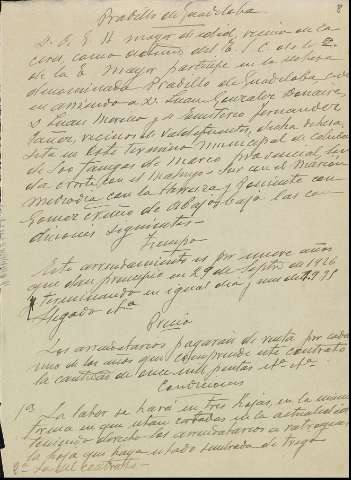 8
Pradillo de Guadaloba
D. G. E. H. mayor de edad, vecino de Ca-
ceres, como
de la E. Mayor, participe en la dehesa
denominada Pradillo de Guadaloba, cede
en arriendo a D. Juan Gonzalez
D. Juan Moreno y D. Emeterio Fernandez
vecinos de Valdefuentes, dicha dehesa,
sita en este termino municipal de cabida
de 500 fanegas de marco provincial, lin-
da Norte con el Madrigo Sur con el
con la y Poniente con
de Abajo bajo las con-
diciones siguientes
Tiempo
Este arrendamiento es por nueve años
que dan principio en 29 de Septbre de 1926
y terminando en igual dia y mes de 1.935
llegado
Precio
Los arrendatarios pagarán de renta por cada
uno de los años que comprende este contrato
la cantidad de once mil pesetas
Condiciones
1ª La labor se hará en tres hojas, en la misma
forma en que estan cortadas en la actualidad
teniendo derecho los arrendatarios a
la hoja que haya estado sembrada de trigo
2ª